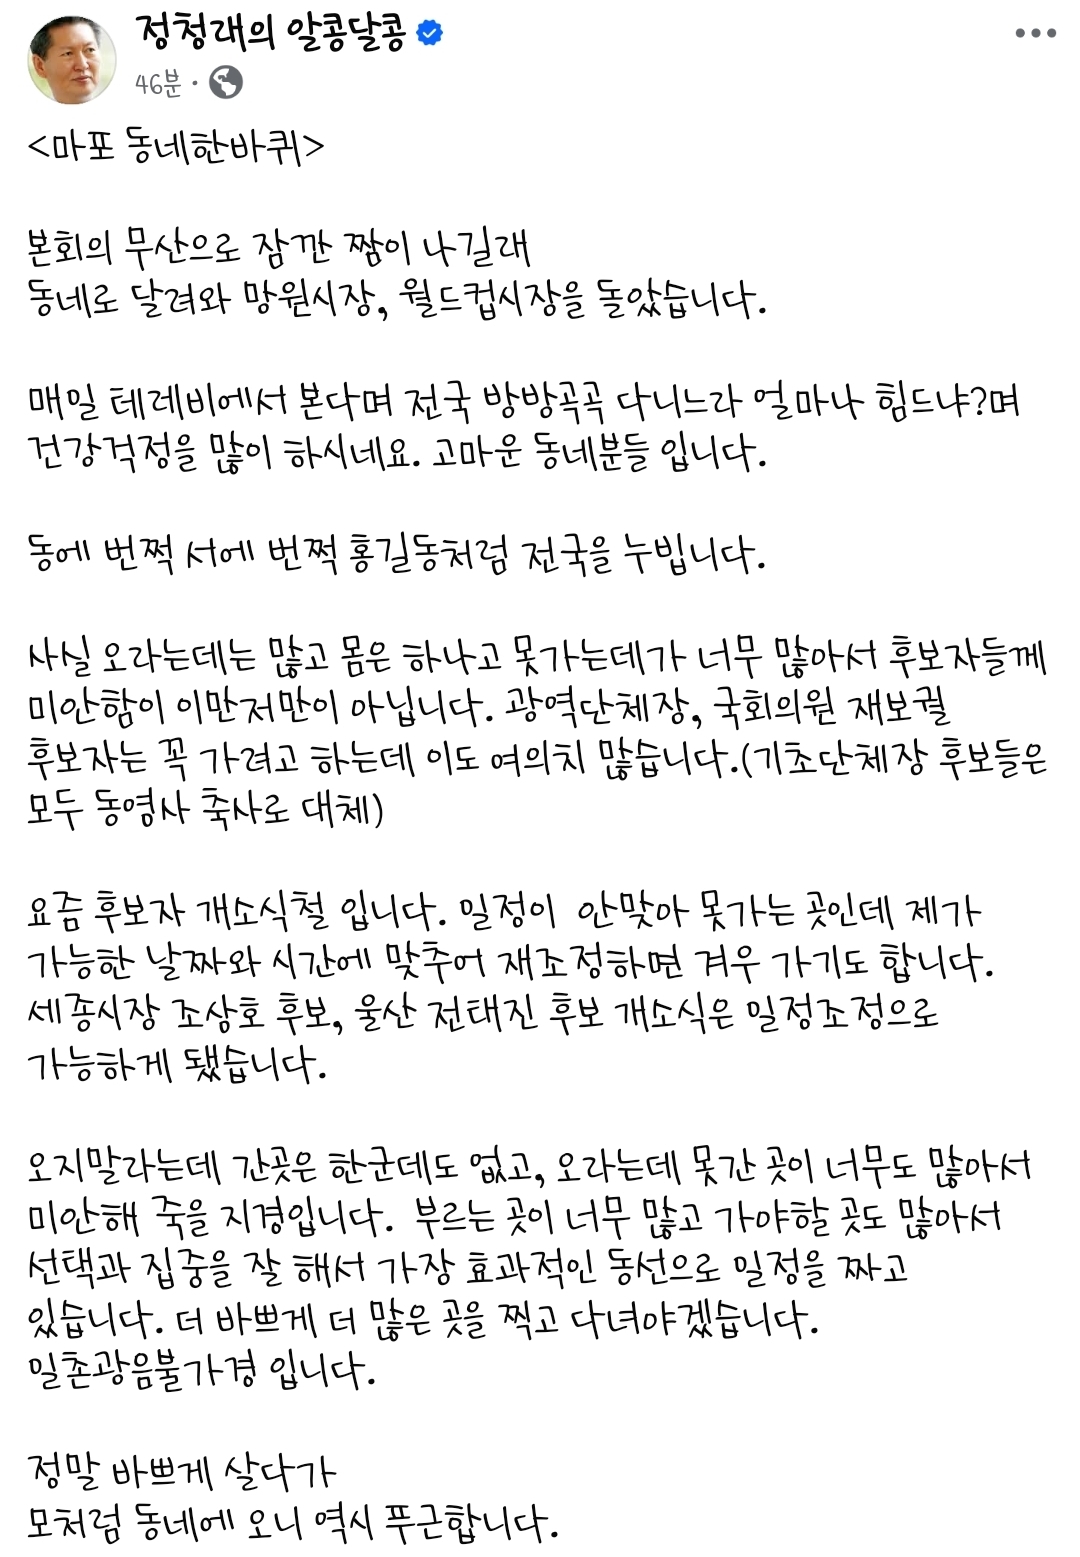 정청래의 알콩달콩
46분 ·
<마포 동네한바퀴>
본회의 무산으로 잠깐 짬이 나길래
동네로 달려와 망원시장, 월드컵시장을 돌았습니다.
매일 테레비에서 본다며 전국 방방곡곡 다니느라 얼마나 힘드냐?며
건강걱정을 많이 하시네요. 고마운 동네분들 입니다.
동에 번쩍 서에 번쩍 홍길동처럼 전국을 누빕니다.
사실 오라는데는 많고 몸은 하나고 못가는데가 너무 많아서 후보자들께
미안함이 이만저만이 아닙니다. 광역단체장, 국회의원 재보궐
후보자는 꼭 가려고 하는데 이도 여의치 많습니다.(기초단체장 후보들은
모두 동영사 축사로 대체)
요즘 후보자 개소식철 입니다. 일정이 안맞아 못가는 곳인데 제가
가능한 날짜와 시간에 맞추어 재조정하면 겨우 가기도 합니다.
세종시장 조상호 후보, 울산 전태진 후보 개소식은 일정조정으로
가능하게 됐습니다.
오지말라는데 간곳은 한군데도 없고, 오라는데 못간 곳이 너무도 많아서
미안해 죽을 지경입니다. 부르는 곳이 너무 많고 가야할 곳도 많아서
선택과 집중을 잘 해서 가장 효과적인 동선으로 일정을 짜고
있습니다. 더 바쁘게 더 많은 곳을 찍고 다녀야겠습니다.
일촌광음불가경 입니다.
정말 바쁘게 살다가
모처럼 동네에 오니 역시 푸근합니다.